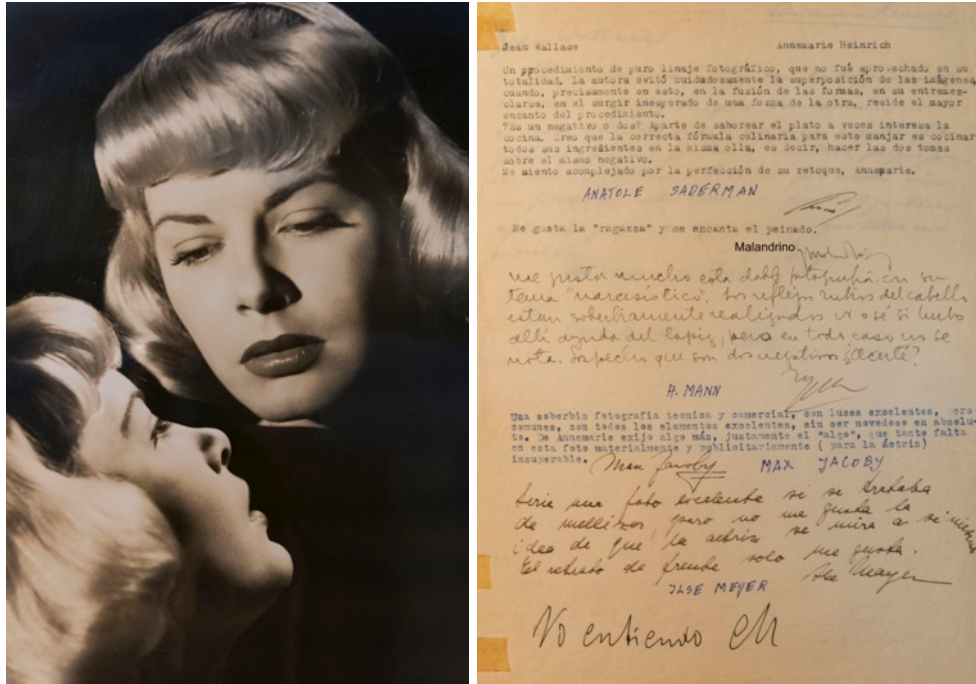 Jean Wallace Annemarie Heinrich
Un procedimiento de puro linaje fotográfico, que no fué aprovechado en su
totalidad. La autora evitó cuidadosamente la superposición de las imágenes,
cuando, precisamente en esto, en la fusión de las formas, en su entremez-
clarse, en el surgir inesperado de una forma de la otra, reside el mayor
encanto del procedimiento.
?Es un negativo o dos? Aparte de saborear el plato a veces interesa la
cocina. Creo que la correcta fórmula culinaria para este manjar es cocinar
todos sus ingredientes en la misma olla, es decir, hacer las dos tomas
sobre el mismo negativo.
Me siento acomplejado por la perfección de su retoque, Annemarie.
ANATOLE SADERMAN
Me gusta la "ragazza" y me encanta el peinado.
Malandrino
me gusta mucho esta doble fotografía, en su
tema "narcisístico". Los reflejos rubios del cabello
estan soberbiamente realizados. No sé si hubo
allí ayuda del lapiz, pero en todo caso no se
nota. Sospecho que son dos negativos ¿Acerté?
H. MANN
Una soberbia fotografia tecnica y comercial, con luces excelentes, pero
comunes, con todos los elementos excelentes, sin ser novedoso en absolu-
to. De Annemarie exijo algo más, justamente el "algo", que tanto falta
en esta foto materialmente y publicitariamente ( para la áctriz)
insuperable.
Max Jacoby MAX JACOBY
Seria una foto excelente si se trataba
de mellizos, pero no me gusta la
idea de que la actriz se mira a si misma
El retrato de frente solo me gusta.
Ilse Mayer
ILSE MEYER
No entiendo